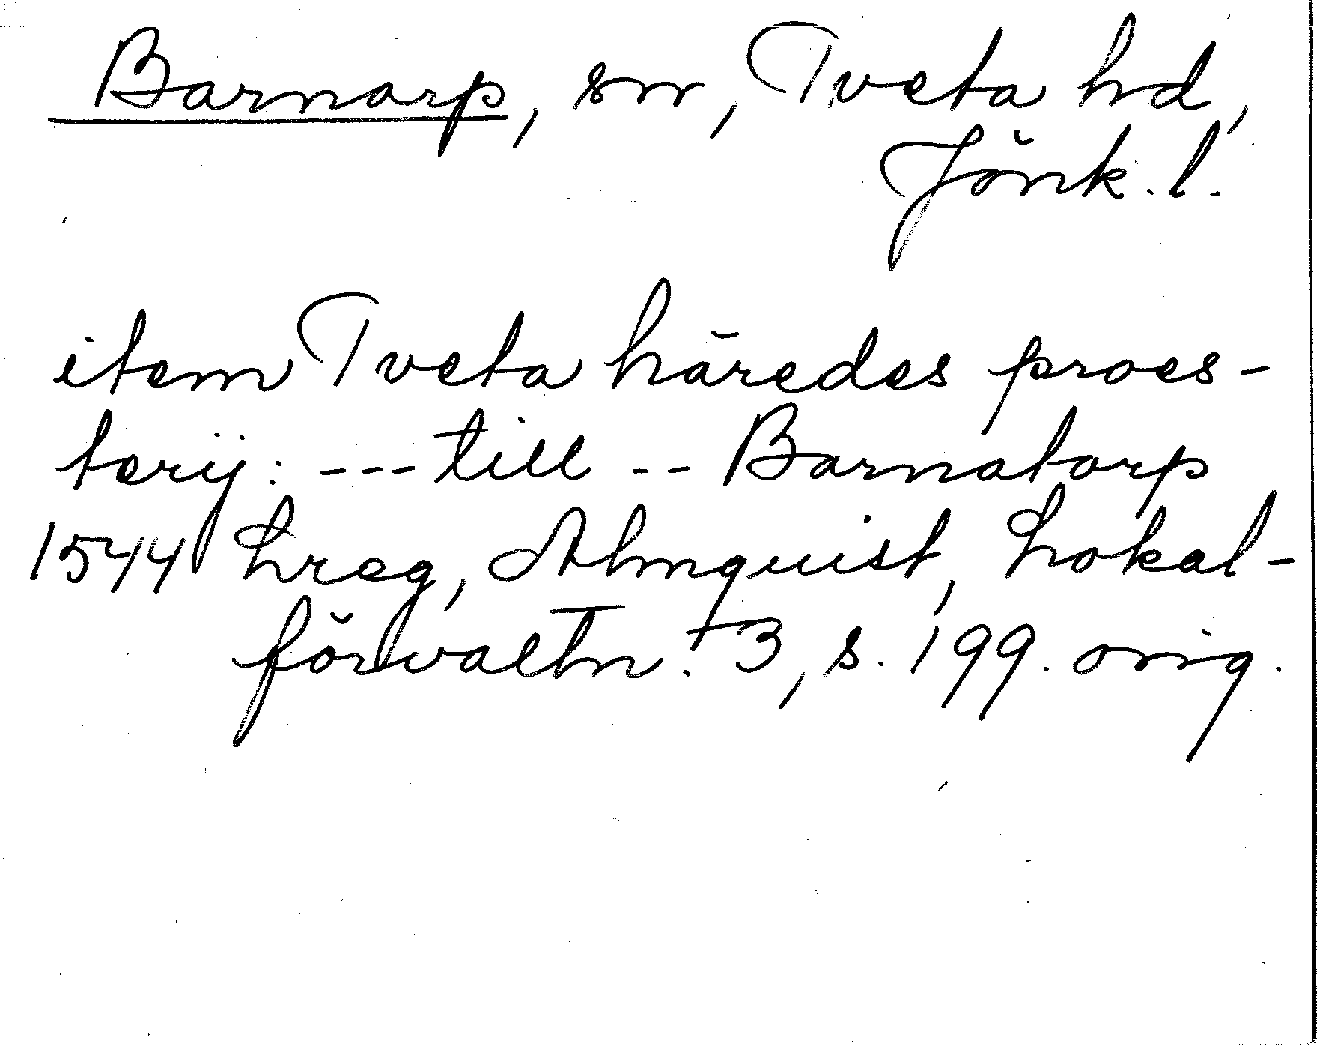 Barnarp, sn, Tveta hd,
Jönk. l.
item Tveta häredes proes-
terij: --- till -- Barnatorp
1544 Lreg, Almquist, Lokal-
förvaltn. 3, s. 199. orig.